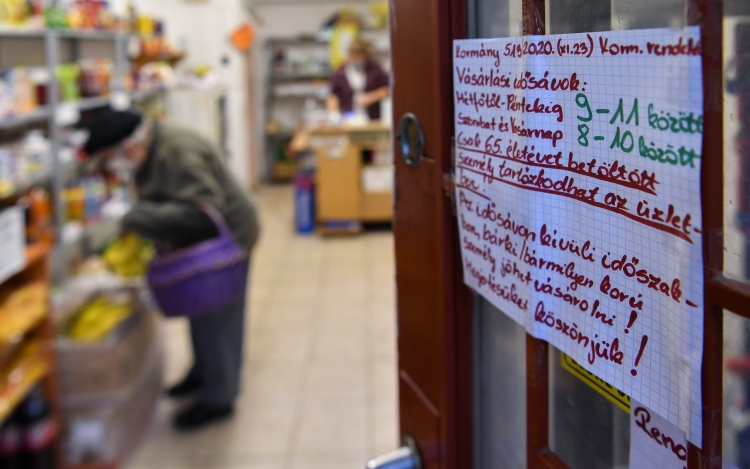 Kormány 513.2020. (XI.23) Korm. rendelet
Vásárlási idősávok:
Hétfőtől-Péntekig 9-11 között
Szombat és Vasárnap 8-10 között
Csak 65. életévét betöltött
személy tartózkodhat az üzlet-
ben.
Az idősávon kívüli időszak-
ban, bárki/bármilyen korú
személy jöhet vásárolni!
Megértésüket köszönjük!